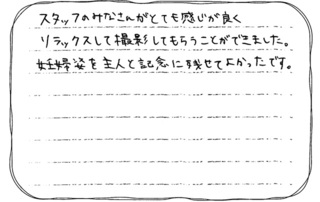 スタッフのみなさんがとても感じが良く
リラックスして撮影してもらうことができました。
妊婦姿を主人と記念に残せてよかったです。